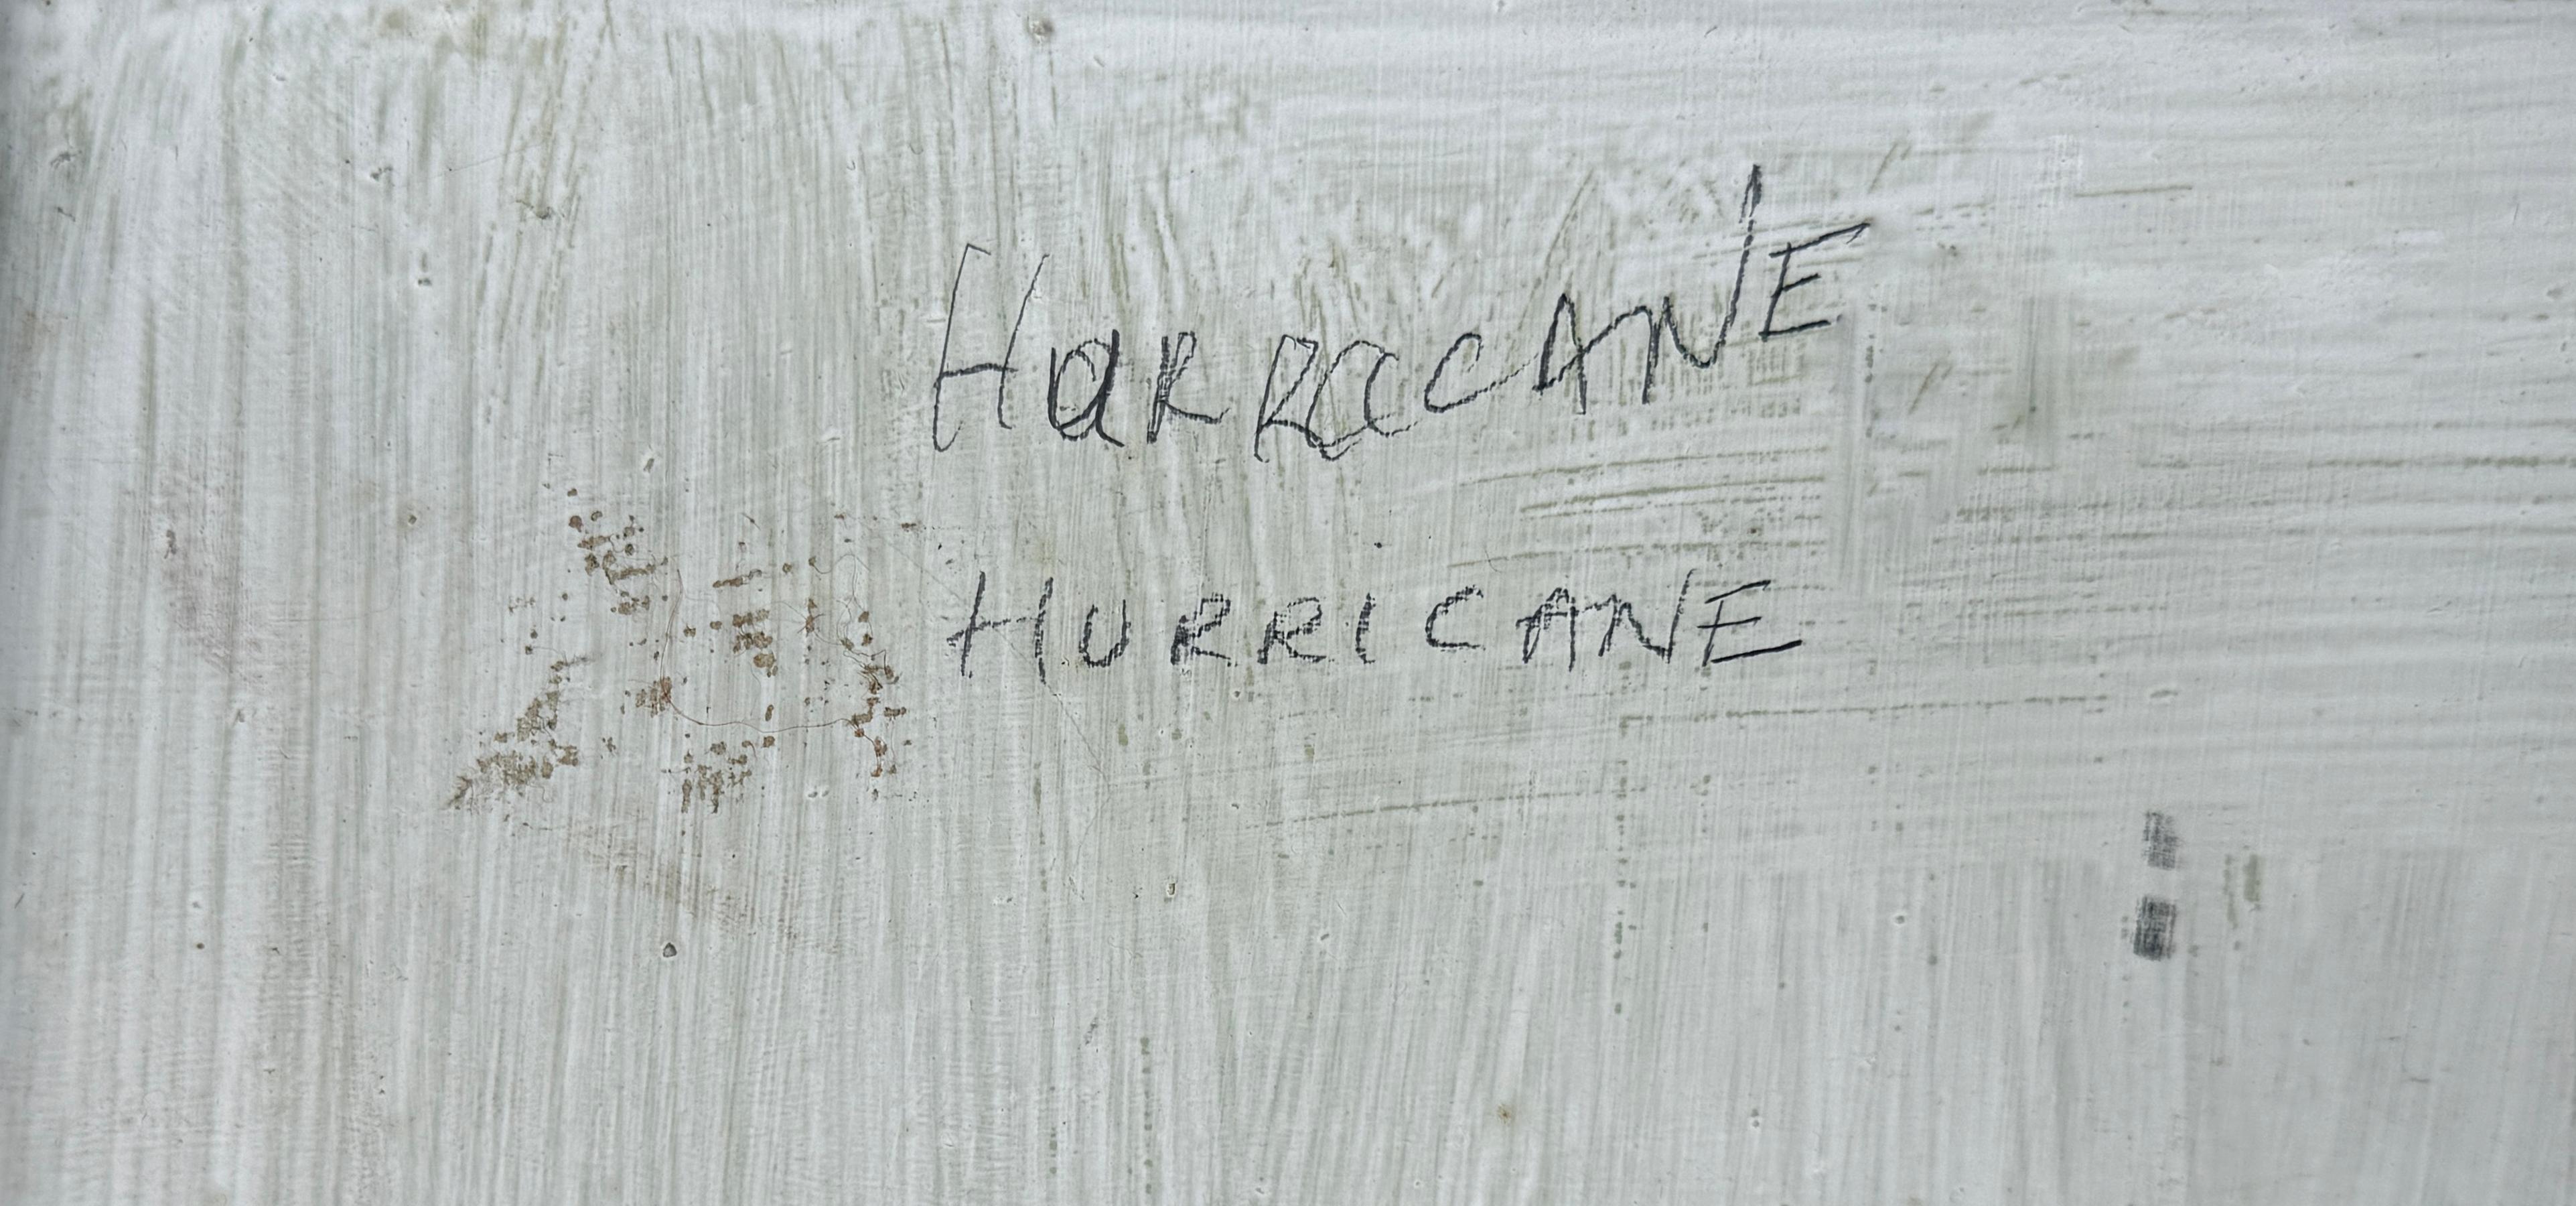 HURRICANE
HURRICANE